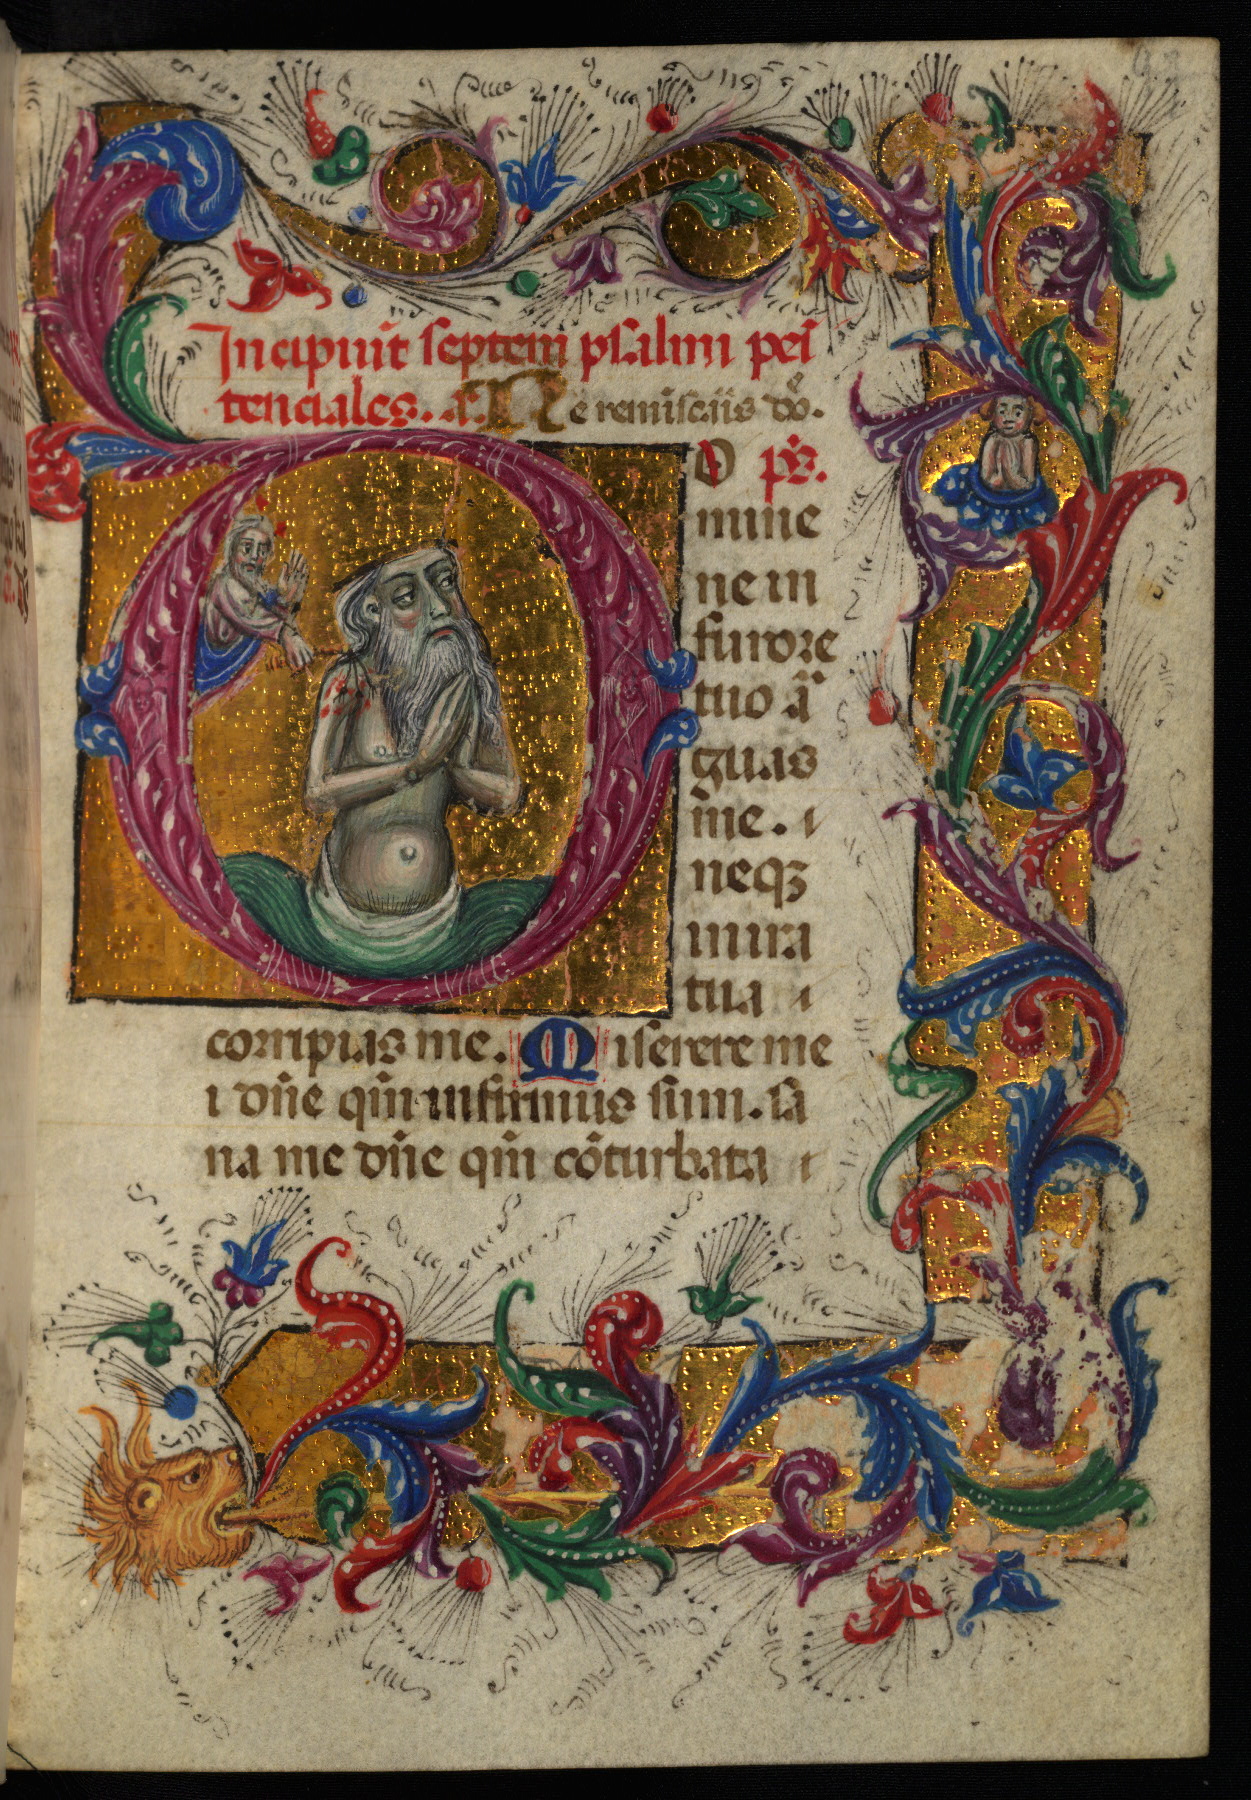 Incipiūt septem psalmi peī
tenciales. a. Ne reminiscaīs dn̄e.
D ps.
mine
ne in
furore
tuo ar̄
guas
me. ⁊
neqꝫ
in ira
tua ⁊
corripias me. Miserere me
i dn̄e qm̄ infirmus sum. sa
na me dn̄e qm̄ cōturbata ⁊